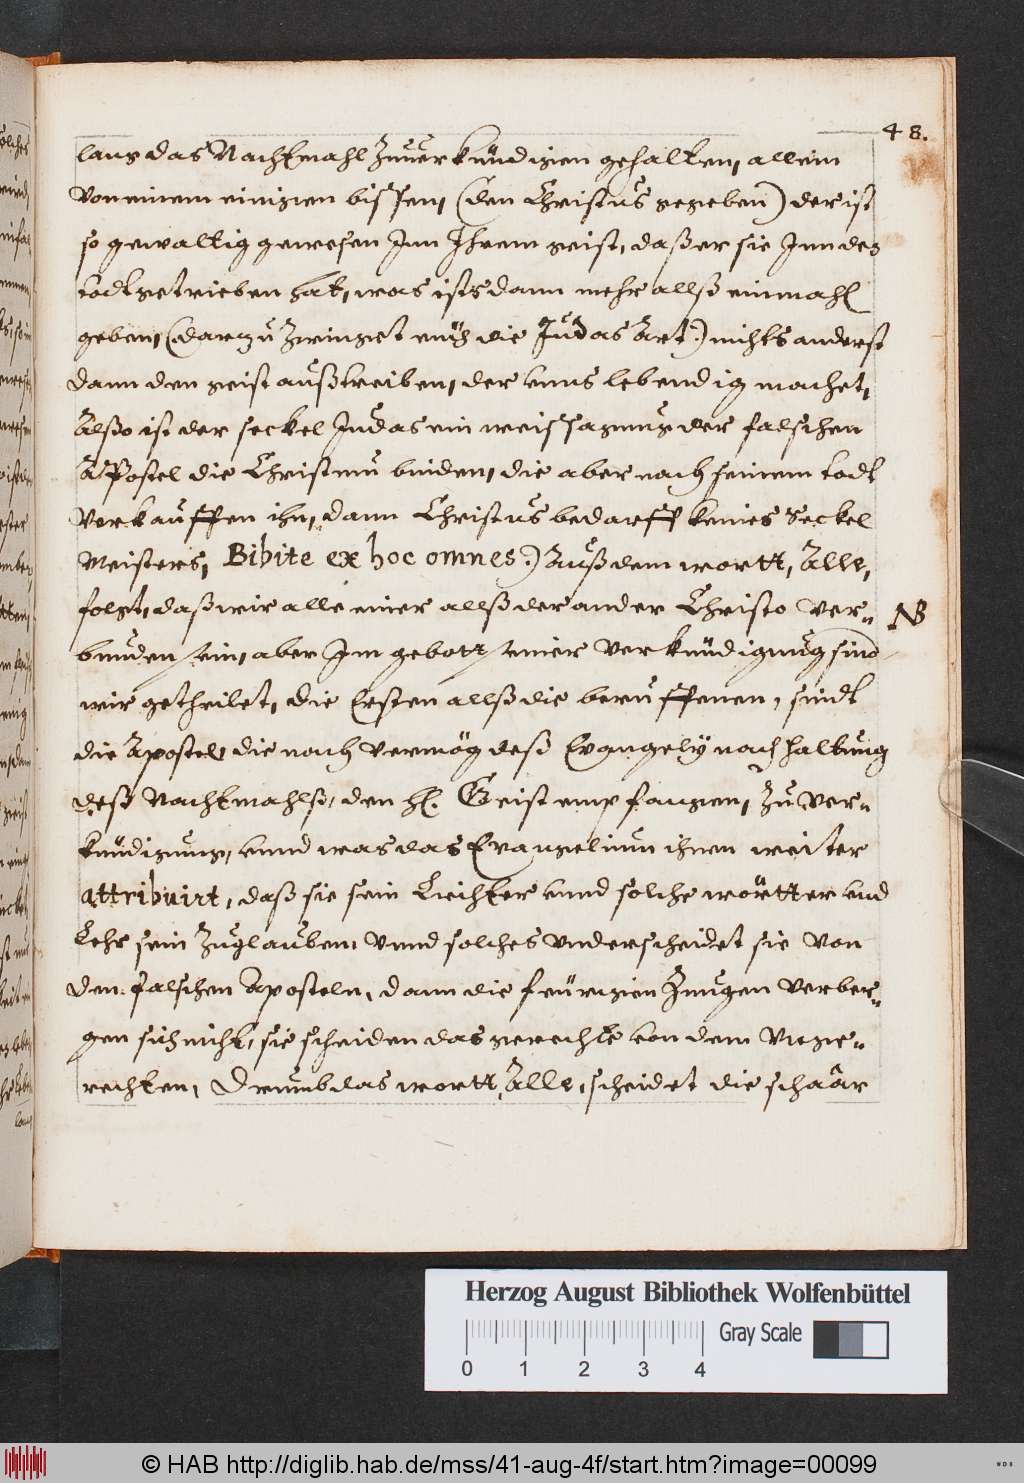 48.
lang das Nachtmahl Zuuerkündigen gehalten, allein
Von einem einigen bissen, (den Christus gegeben) der ist
so gewaltig gewesen Inn Ihrem geist, daß er sie Inn des
todt getrieben hat, was ists dann mehr allß einmahl
geben, (darzu Zwinget euch die Judas Art.) nichts anderst
dann den geist außtreiben, der unns lebendig machet,
Alßo ist der seckel Judas ein weissagung der falschen
Apostel die Christum binden, die aber nach seinem todt
Verkauffen ihn, dann Christus bedarff keines Seckel
Meisters, Bibite ex hoc omnes.) Außdem wortt, Alle,
folgt, daß wir alle einer allß der ander Christo Ver=
NB
bunden sein, aber Im gebott seiner Verkündigung sind
wir getheilet, die Ersten allß die beruffenen, sindt
die Apostel, die nach vermög deß Evangely nach haltung
deß Nachtmahlß, den H. Geist empfangen, Zu Ver=
kündigung, unnd was das Evangelium ihnen weiter
attribuirt, daß sie sein Liechter unnd solche wörtter und
Lehr sein Zuglauben, Unnd solches underscheidet sie Von
den falschen Aposteln, dann die feürigen Zungen Verber=
gen sich nicht, sie scheiden das gerechte von dem Unge=
rechten, Drumb das wortt, Alle, scheidet die schaar
Herzog August Bibliothek Wolfenbüttel
Gray Scale
0 1 2 3 4
© HAB http://diglib.hab.de/mss/41-aug-4f/start.htm?image=00099